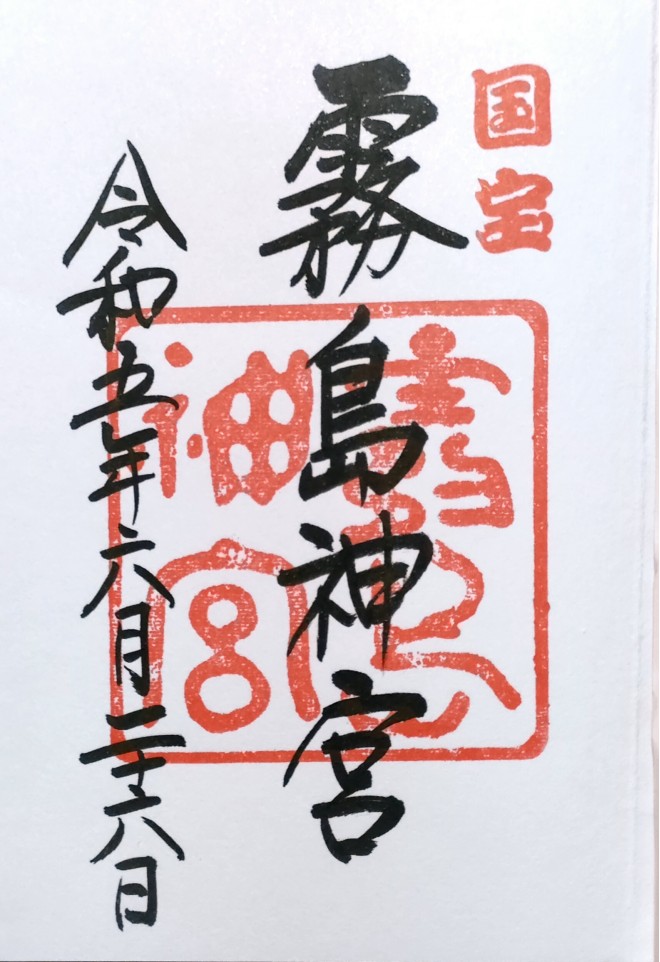 国宝
霧島神宮
霧島
神宮
令和五年六月二十六日